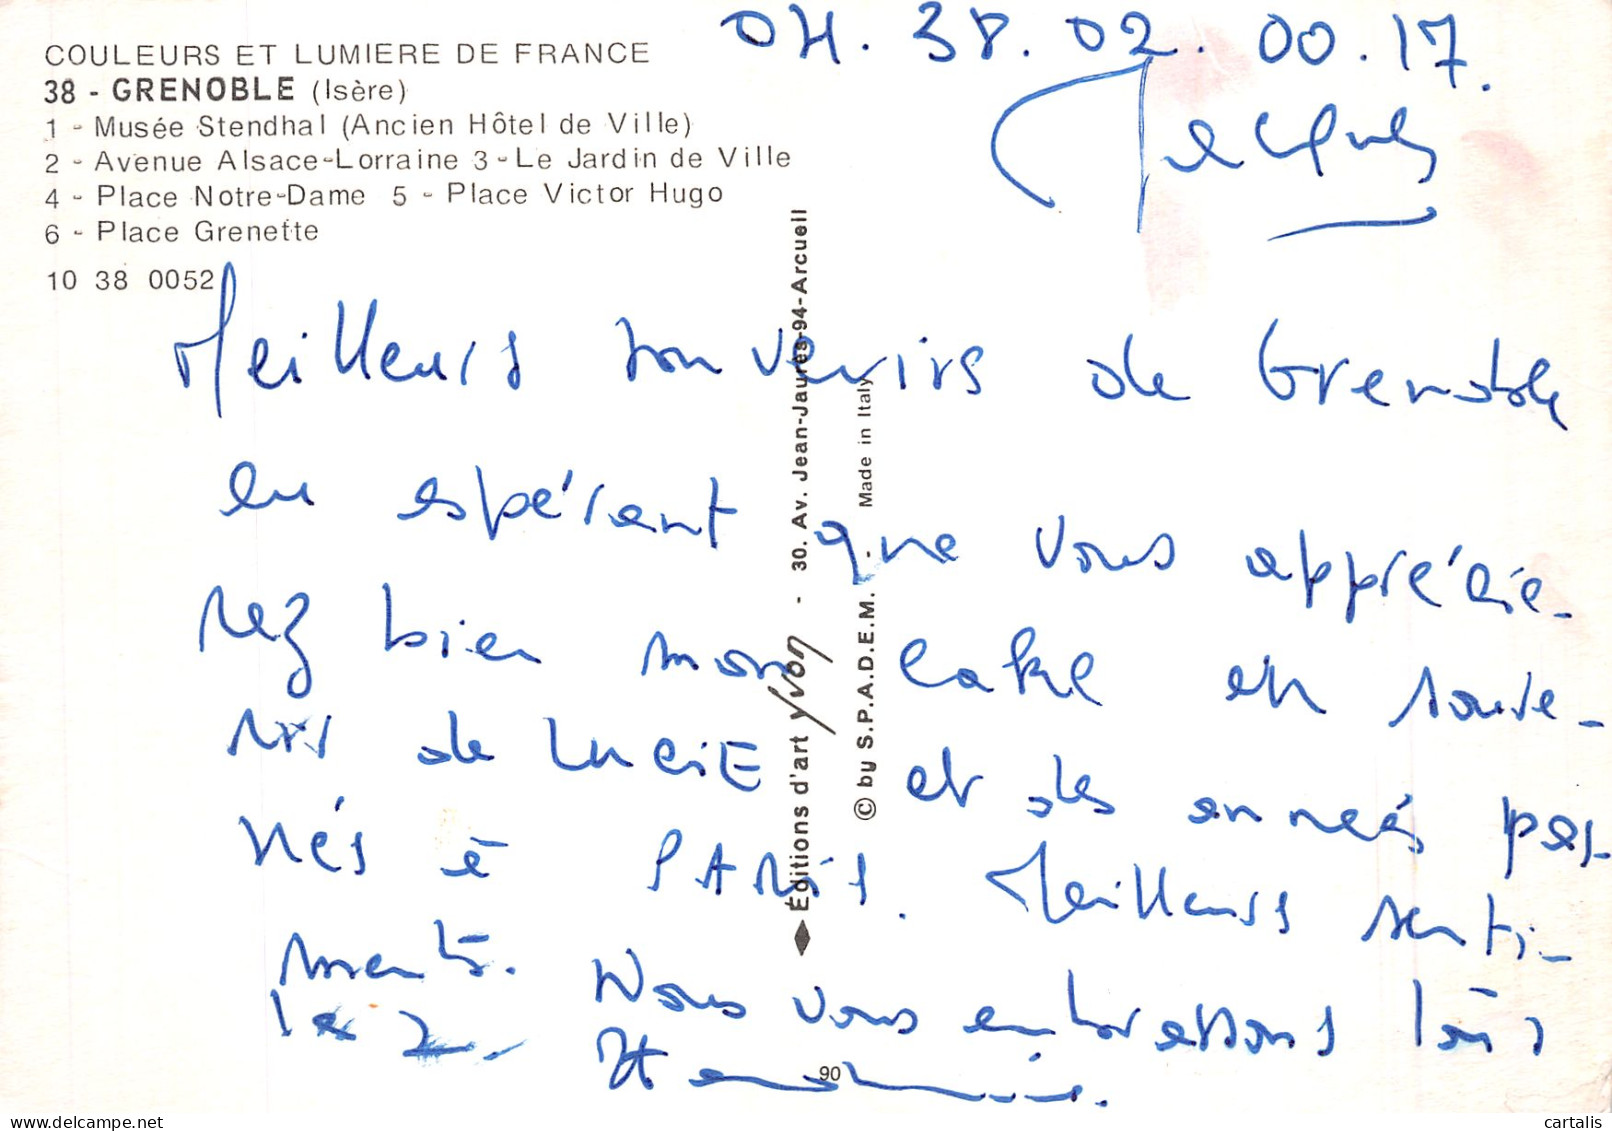 04. 38. 02. 00. 17.
COULEURS ET LUMIERE DE FRANCE
38 - GRENOBLE (Isère)
1 - Musée Stendhal (Ancien Hôtel de Ville)
2 - Avenue Alsace-Lorraine 3 - Le Jardin de Ville
4 - Place Notre-Dame 5 - Place Victor Hugo
6 - Place Grenette
10 38 0052
Jacques
Meilleurs souvenirs de Grenoble
en espérant que vous appréecie-
rez bien mon cake en souve-
nirs de LUCIE et des années pas-
nés à PARIS. Meilleurs senti-
ments. Nous vous embrassons tous
les 2.
Éditions d'art yvon - 30. Av. Jean-Jaurès-94-Arcueil
© by S.P.A.D.E.M. - Made in Italy
90
cartalis